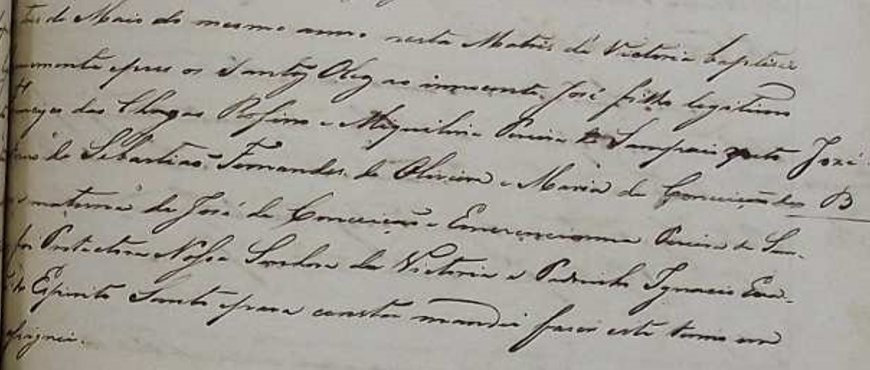 de Maio do mesmo anno nesta Matris da Victoria baptisei
os Santos Oleos ao innocente José filho legitimo
das Chagas Rofino e Miquilina Pereira de Sampaio neto José
de Sebastiaõ Fernandes de Oliveira e Maria da Conceiçaõ B
materno de José da Conceiçaõ e Emerencianna Pereira de Sam-
foi Protectora Nossa Senhora da Victoria e Padrinho Ignacio
Espirito Santo e para constar mandei fazer este termo em
assignei.